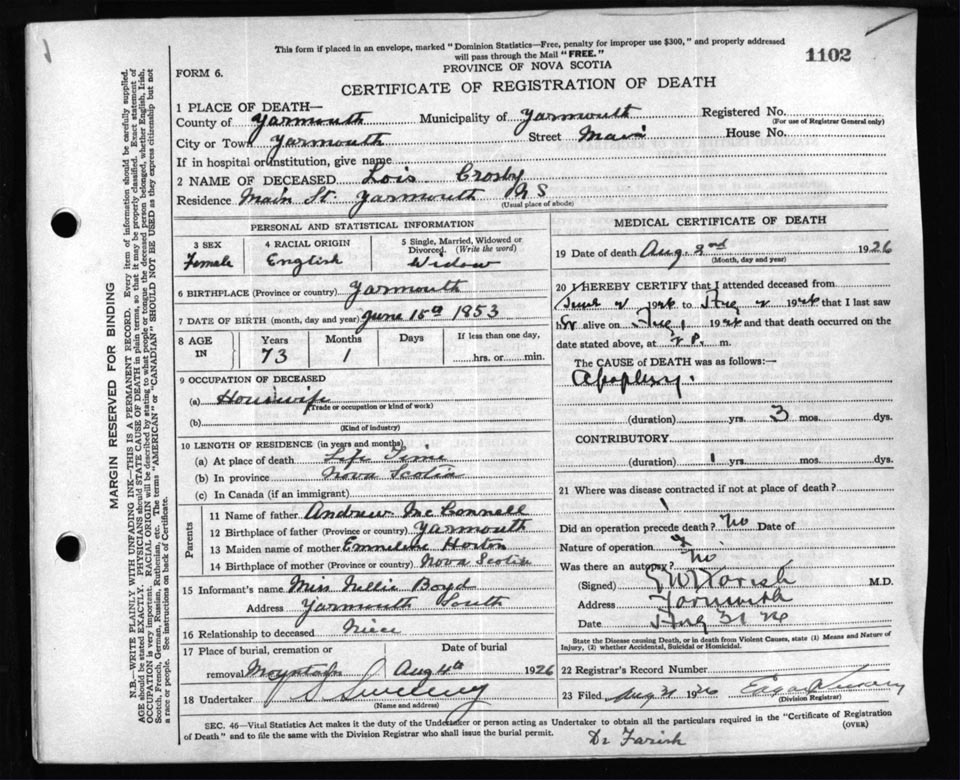 This form if placed in an envelope, marked "Dominion Statistics—Free, penalty for improper use $300," and properly addressed
will pass through the Mail "FREE."
1102
PROVINCE OF NOVA SCOTIA
FORM 6.
CERTIFICATE OF REGISTRATION OF DEATH
1 PLACE OF DEATH—
County of Yarmouth Municipality of Yarmouth Registered No.
(For use of Registrar General only)
City or Town Yarmouth Street Main House No.
If in hospital or institution, give name
2 NAME OF DECEASED Lois Crosby
Residence Main St. Yarmouth N S
(Usual place of abode)
PERSONAL AND STATISTICAL INFORMATION
3 SEX 4 RACIAL ORIGIN 5 Single, Married, Widowed or
Divorced. (Write the word)
Female English Widow
6 BIRTHPLACE (Province or country) Yarmouth
7 DATE OF BIRTH (month, day and year) June 15th 1853
8 AGE IN Years Months Days If less than one day,
73 1 hrs. or min.
9 OCCUPATION OF DECEASED
(a) Housewife
(Trade or occupation or kind of work)
(b)
(Kind of industry)
10 LENGTH OF RESIDENCE (in years and months)
(a) At place of death Life Time
(b) In province Nova Scotia
(c) In Canada (if an immigrant)
Parents
11 Name of father Andrew Mc Connell
12 Birthplace of father (Province or country) Yarmouth
13 Maiden name of mother Emmeline Horton
14 Birthplace of mother (Province or country) Nova Scotia
15 Informant's name Miss Nellie Boyd
Address Yarmouth South
16 Relationship to deceased Niece
17 Place of burial, cremation or Date of burial
removal Aug 4th 1926
18 Undertaker Sweeney
(Name and address)
MEDICAL CERTIFICATE OF DEATH
19 Date of death Aug. 2nd 1926
(Month, day and year)
20 I HEREBY CERTIFY that I attended deceased from
June 2 1926 to Aug 2 1926 that I last saw
her alive on Aug 1 1926 and that death occurred on
date stated above, at 2 P. m.
The CAUSE of DEATH was as follows:—
Apoplexy.
(duration) yrs. 3 mos. dys.
CONTRIBUTORY
(duration) 1 yrs. mos. dys.
21 Where was disease contracted if not at place of death?
Did an operation precede death? No Date of
Nature of operation
Was there an autopsy? No
(Signed) Farish M.D.
Address Yarmouth
Date Aug 31 26
State the Disease causing Death, or in death from Violent Causes, state (1) Means and Nature of
Injury, (2) whether Accidental, Suicidal or Homicidal.
22 Registrar's Record Number
23 Filed Aug 31 1926
(Division Registrar)
SEC. 46—Vital Statistics Act makes it the duty of the Undertaker or person acting as Undertaker to obtain all the particulars required in the "Certificate of Registration
of Death" and to file the same with the Division Registrar who shall issue the burial permit.
(OVER)
Dr Farish
MARGIN RESERVED FOR BINDING
N.B.—WRITE PLAINLY WITH UNFADING INK—THIS IS A PERMANENT RECORD. Every item of information should be carefully supplied.
AGE should be stated EXACTLY. PHYSICIANS should STATE CAUSE OF DEATH in plain terms, so that it may be properly classified. Exact statement of
OCCUPATION is very important. RACIAL ORIGIN will be described by stating to what people or tongue the deceased person belonged, whether English, Irish,
Scotch, French, German, Russian, Ruthenian, etc. The terms "AMERICAN" or "CANADIAN" SHOULD NOT BE USED as they express citizenship but not
a race or people. See instructions on back of Certificate.